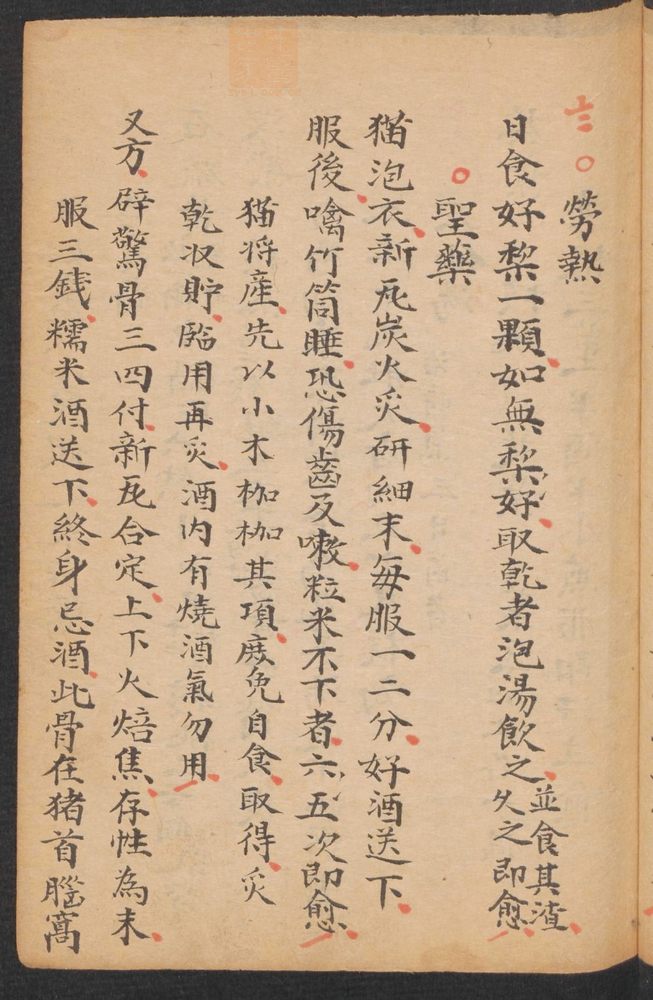 三 勞熱
日食好梨一顆如無梨好取乾者泡湯飲之並食其渣久之即愈
聖藥
猫泡衣新瓦炭火炙研細末每服一二分好酒送下
服後噙竹筒睡恐傷齒及嗽粒米不下者六五次即愈
猫将產先以小木枷枷其項庶免自食取得炙
乾収貯臨用再炙酒内有燒酒氣勿用
又方辟驚骨三四付新瓦合定上下火焙焦存性為末
服三錢糯米酒送下終身忌酒此骨在猪首腦窩